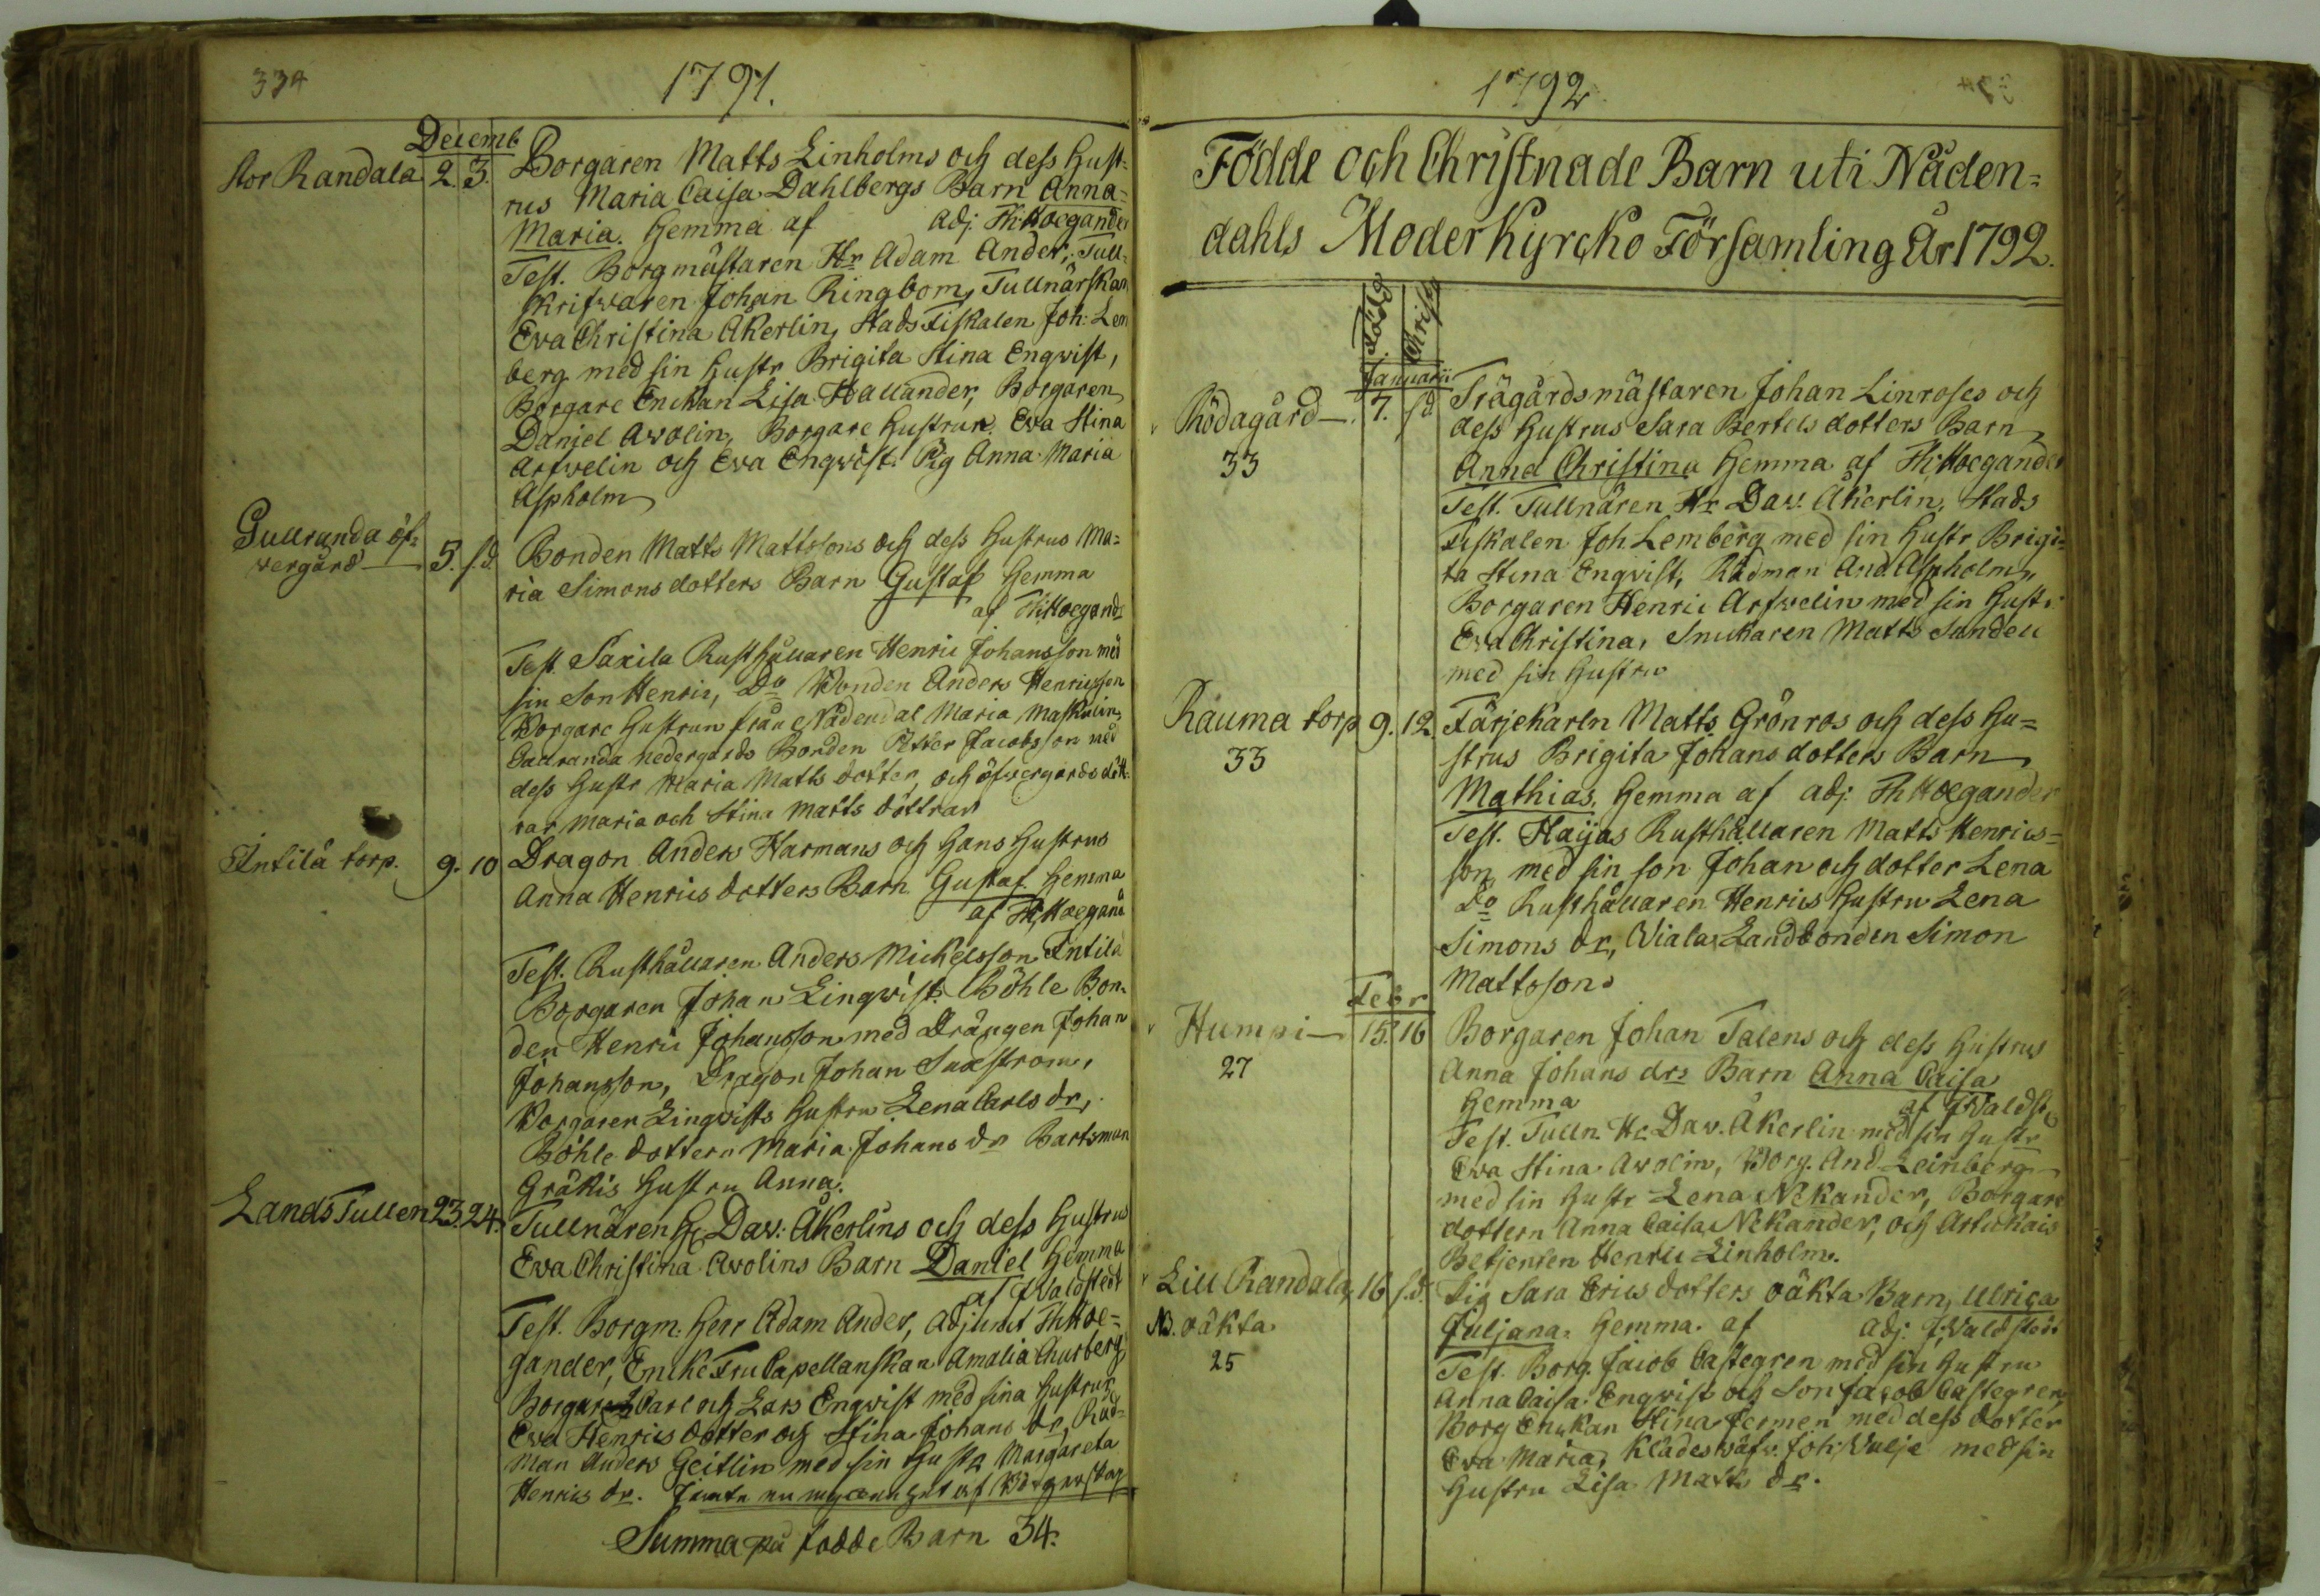 334
1791.
Decemb
Stor Randala 2. 3. Borgaren Matts Linholms och dess Hust-
rus Maria Caisa Dahlbergs Barn Anna-
Maria. hemma af adj. Th: Hoegander
Test. Borgmästaren Hr Adam Ander, Tull-
skrifvaren Johan Ringbom, Tullnärskan
Eva Christina Åkerlin, Stads Fiskalen Joh: Lem
berg med sin Hustr Brigita Stina Engwist,
Borgare Enckan Lisa Hallander, Borgaren
Daniel Avolin, Borgare Hustrun Eva Stina
Arfvelin och Eva Engwist. Pig Anna Maria
Aspholm
Gullranda öf-
vergård 5. s.d. Bonden Matts Mattssons och dess Hustrus Ma-
ria Simonsdotters Barn Gustaf hemma
af Th: Hoegand:
Test. Saxila Rusthållaren Henric Johansson med
sin Son Henric, Do Bonden Anders Henricsson
Borgare Hustrun från Nådendal Maria Maskulin,
nedergårds Bonden Petter Jacobsson med
dess Hustr Maria Matts dotter, och öfvergårds dött-
rar Maria och Stina Matts döttrar
Antila torp. 9. 10 Dragon Anders Harmans och hans Hustrus
Anna Henrics dotters Barn Gustaf hemma
af Th: Hoegand
Test. Rusthållaren Anders Mickelsson Antila
Borgaren Johan Lingwist. Böhle Bon-
den Henric Johansson med Drängen Johan
Johansson, Dragon Johan Sundstrom,
Borgaren Lingwists Hustru Lena Carls dr,
Böhle dottern Maria Johans dr Bartsman
Gräkis Hustru Anna.
Lands Tullen 23. 24. Tullnären H. Dav: Åkerlins och dess Hustrus
Eva Christina Avolins Barn Daniel hemma
af J Waldstedt
Test. Borgm. Herr Adam Ander, Adjunct Th Hoe-
gander, Encke Fru Capellanskan Amalia Churberg,
Borgare Carl och Lars Engwist med sina Hustrur
Eva Henrics dotter och Stina Johans dr, Råd-
man Anders Geitlin med sin Hustr Margareta
Henrics dr.
Summa på födde Barn 34.
1792
Födde och Christnade Barn uti Nåden-
dahls Moder Kyrcko Församling År 1792.
Januarii
Rödagård 7. s.d. Trägårdsmästaren Johan Linroses och
33 dess Hustrus Sara Bertels dotters Barn
Anna Christina hemma af Th: Hoegander
Test. Tullnären Hr Dav. Åkerlin, Stads
Fiskalen Joh. Lemberg med sin Hustr Brigi-
ta Stina Engvist, Rådman And. Aspholm,
Borgaren Henric Arfvelin med sin Hustr:
Eva Christina, Snickaren Matts Sandell
med sin Hustru
Rauma torp 9. 12. Färjekarln Matts Grönros och dess Hu-
33 strus Brigita Johans dotters Barn
Mathias, hemma af adj: Th Hoegander
Test. Haijas Rusthållaren Matts Henrics-
son med sin son Johan och dotter Lena
Do Rusthållaren Henrics Hustru Lena
Simons dr, Viala Landbonden Simon
Mattsson.
Febr
Humpi 15. 16 Borgaren Johan Talens och dess Hustrus
27 Anna Johans drs Barn Anna Caisa
hemma af J Waldst
Test. Tulln. Hr. Dav. Åkerlin med sin Hustr
Eva Stina Avolin, Borg. And Leinberg
med sin Hustr Lena Nekander, Borgare
dottern Anna Caisa Nekander, och
Betjenten Henric Linholm.
Lill Randala, 16 s.d. Pig Sara Erics dotters oäkta Barn, Ulrica
NB. oäkta Juljana, hemma af adj. J. Waldstedt
25 Test. Borg. Jacob Castegren med sin Hustru
Anna Caisa Engvist och Son Jacob Castegren,
Borg Enckan Stina Fermen med dess dotter
Eva Maria, Klädesväfv. Joh. Vulje med sin
Hustru Lisa Matts dr.